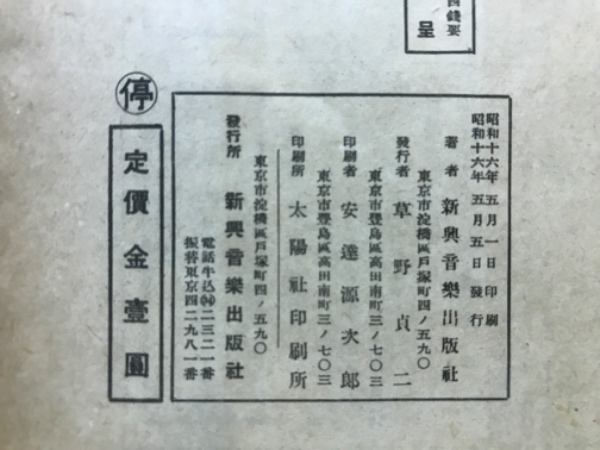 四錢要
呈
昭和十六年 五月一日 印刷
昭和十六年 五月五日 發行
著者 新興音樂出版社
東京市淀橋區戸塚町四ノ五九〇
發行者 草野貞二
東京市豐島區高田南町三ノ七〇三
印刷者 安達源次郎
東京市豐島區高田南町三ノ七〇三
印刷所 太陽社印刷所
東京市淀橋區戸塚町四ノ五九〇
發行所 新興音樂出版社
電話牛込㉞二三二一番
振替東京四二九八一番
停
定價金壹圓